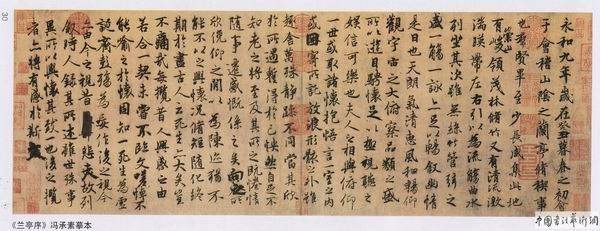 永和九年歲在癸丑暮春之初會
于會稽山陰之蘭亭脩稧事
也群賢畢至少長咸集此地
有崇山峻領茂林脩竹又有清流激
湍暎帶左右引以為流觴曲水
列坐其次雖無絲竹管弦之
盛一觴一詠亦足以暢敘幽情
是日也天朗氣清惠風和暢仰
觀宇宙之大俯察品類之盛
所以遊目騁懷足以極視聽之
娛信可樂也夫人之相與俯仰
一世或取諸懷抱悟言一室之內
或因寄所託放浪形骸之外雖
趣舍萬殊靜躁不同當其欣
於所遇蹔得於己怏然自足不
知老之將至及其所之既惓情
隨事遷感慨係之矣向之所
欣俛仰之閒以為陳迹猶不
能不以之興懷況脩短隨化終
期於盡古人云死生亦大矣豈
不痛哉每攬昔人興感之由
若合一契未嘗不臨文嗟悼不
能喻之於懷固知一死生為虛
誕齊彭殤為妄作後之視今
亦由今之視昔悲夫故列
敘時人錄其所述雖世殊事
異所以興懷其致一也後之攬
者亦將有感於斯文
30
《兰亭序》冯承素摹本
中国书法艺术网